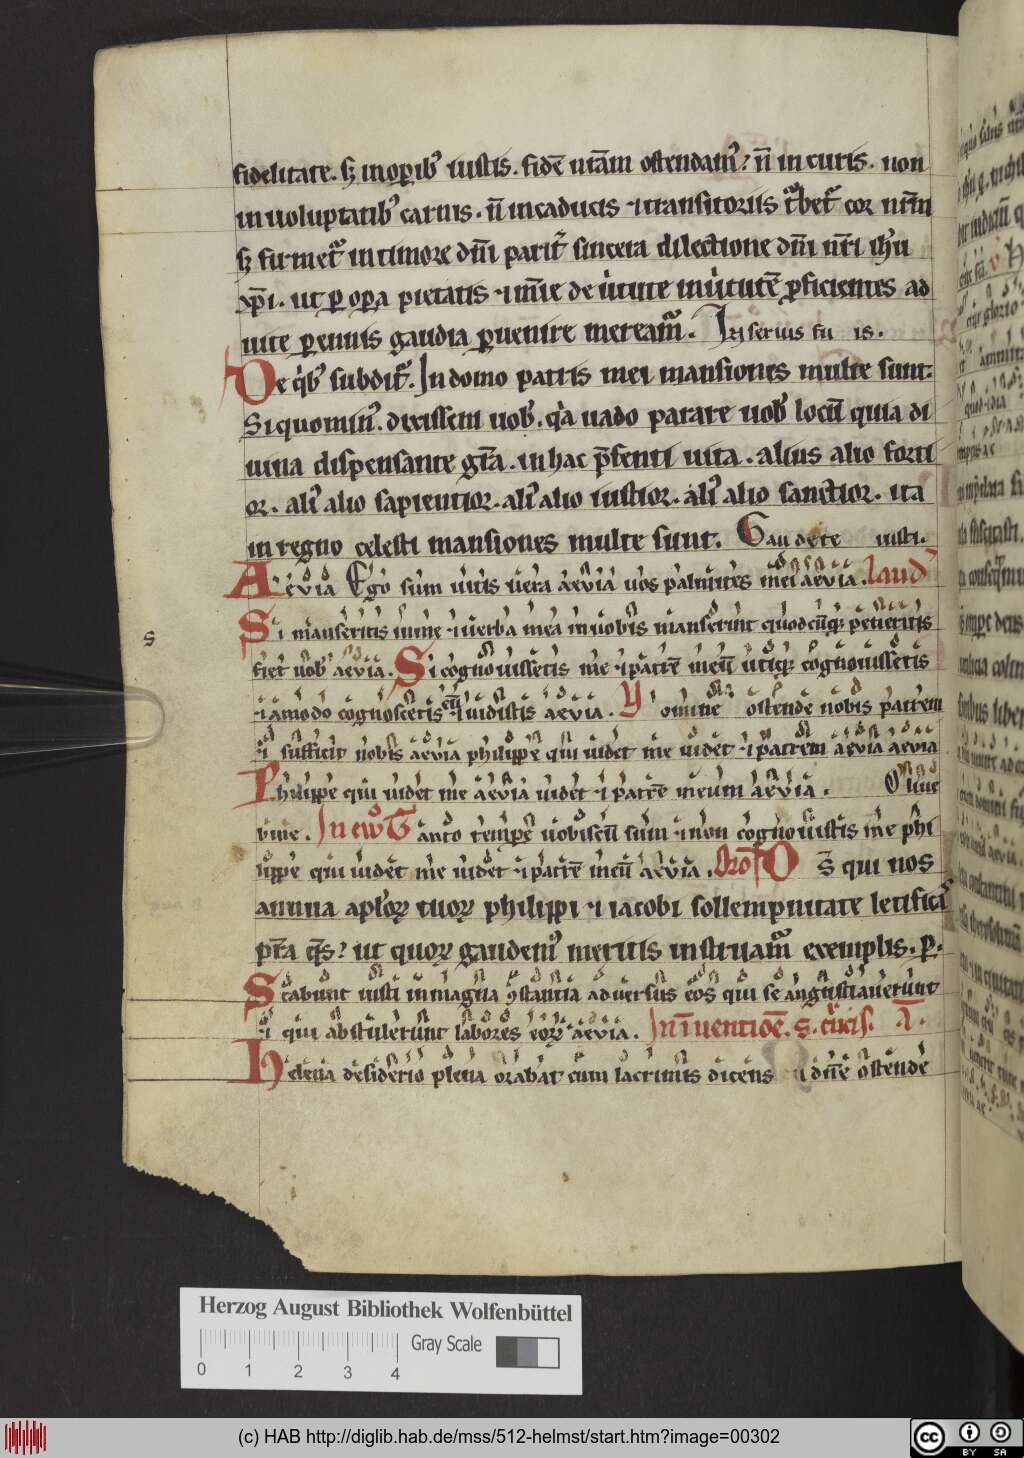 fidelitate. sꝫ in oꝑibꝰ iustis. fidē nr̄am ostendamꝰ? n̄ in curis. non
in uoluptatibꝰ carnis. n̄ in caducis ⁊ transitoriis t̾bet᷑ cor nr̄m
sꝫ firmet᷑ in timore dn̄i parit᷑ sincera dilectione dn̄i nr̄i ih̄u
xp̄i. ut ꝑ oꝑa pietatis ⁊ mīe de uirtute in uirtutē ꝓficientes ad
uite ꝑennis gaudia ꝑuenire meream᷑. In seruis su is.
De qͥbꝰ subdit᷑. In domo patris mei mansiones multe sunt:
Si quominꝰ. dixissem uobꝭ. qͥa uado parare uobꝭ locū quia di
uina dispensante gr̄a. in hac p̄senti uita. alius alio forti
or. aliꝰ alio sapientior. aliꝰ alio iustior. aliꝰ alio sanctior. ita
in regno celesti mansiones multe sunt. Gau de te iusti.
Aeuia Ego sum uitis uera aeuia uos palmites mei aeuia. Laud
Si manseritis in me ⁊ uerba mea in uobis manserint quodcūqꝫ petieritis
fiet uobꝭ aeuia. Si cognouissetis me ⁊ patrē meū utiqꝫ cognouissetis
⁊ amodo cognoscetis eū ⁊ uidistis aeuia. Y omine ostende nobis patrem
⁊ sufficit nobis aeuia philippe qui uidet me uidet ⁊ patrem aeuia aeuia
Philippe qui uidet me aeuia uidet ⁊ patrē meum aeuia. O liue
biue. In ew̄ Tanto tempe uobiscū sum ⁊ non cognouistis me phi
lippe qui uidet me uidet ⁊ patrē meū aeuia. Oro D s̄ qui nos
annua aplōꝝ tuoꝝ philippi ⁊ iacobi sollempnitate letificas
pr̄a qs̄? ut quoꝝ gaudemꝰ meritis instruam᷑ exemplis. ꝑ.
Stabunt iusti in magna ꝯstantia aduersus eos qui se angustiauerunt
⁊ qui abstulerunt labores eoꝝ aeuia. In Inuentiōē. S. crucis. A.
Helena desiderio plena orabat cum lacrimis dicens dn̄e ostende
s
Herzog August Bibliothek Wolfenbüttel
Gray Scale
0 1 2 3 4
(c) HAB http://diglib.hab.de/mss/512-helmst/start.htm?image=00302
cc BY SA